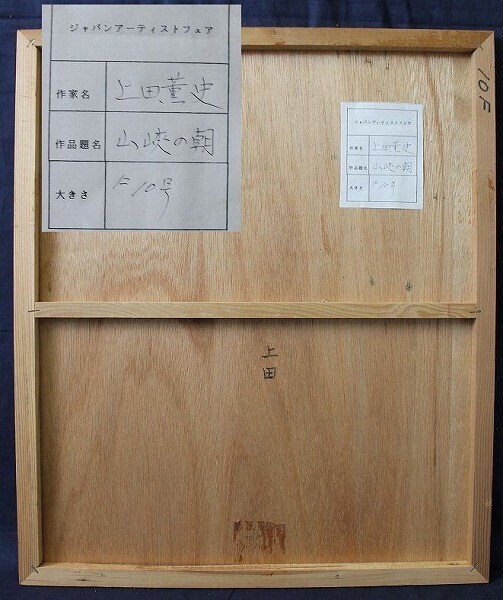 ジャパンアーティストフェア
作家名 上田薫史
作品題名 山峡の朝
大きさ F10号
10F
ジャパンアーティストフェア
作家名 上田薫史
作品題名 山峡の朝
大きさ F10号
上田